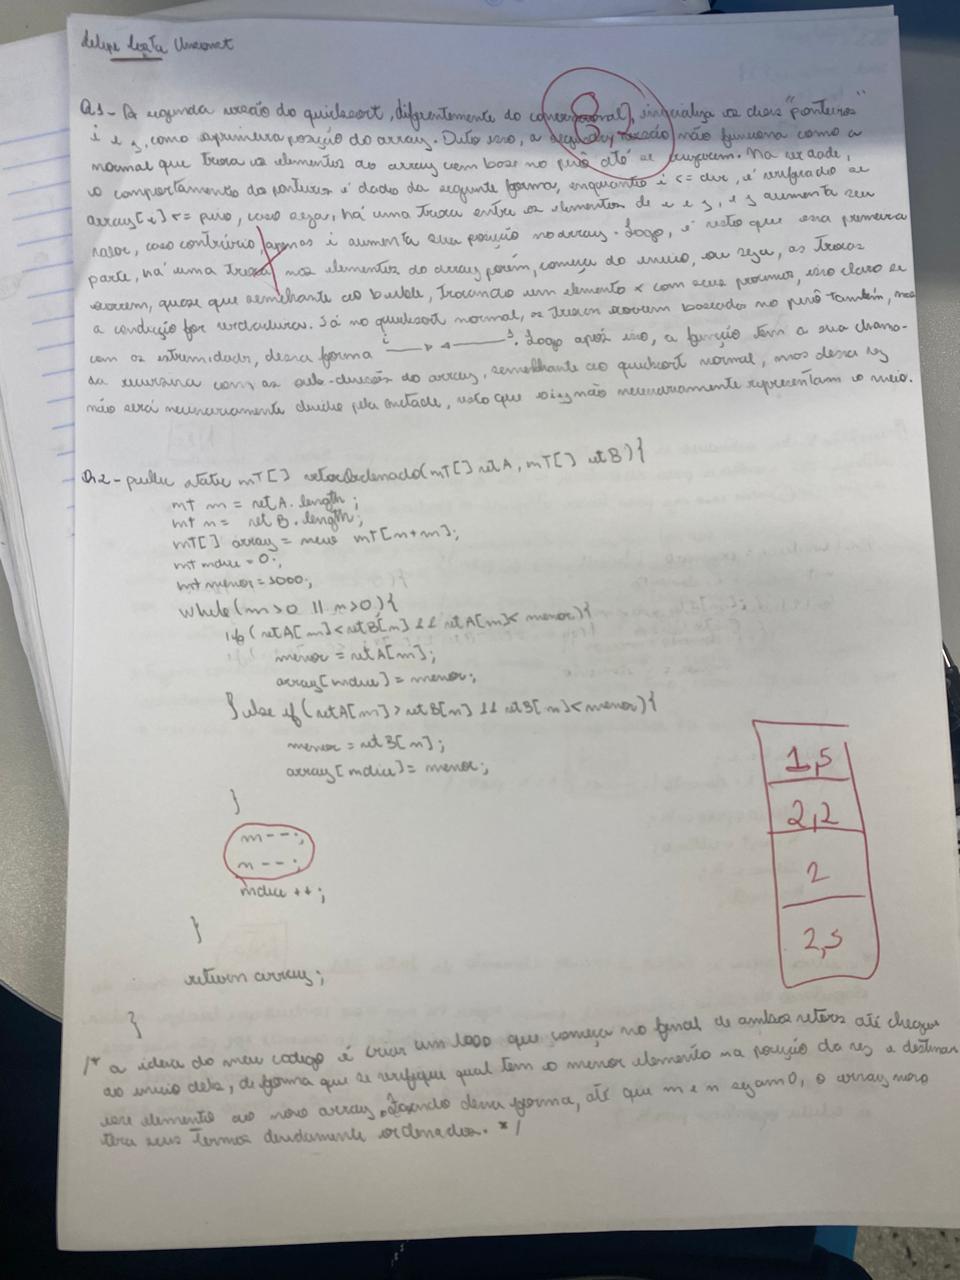 Felipe Costa Unsonst
8,2
Q1 - A segunda versão do quicksort, diferentemente do convencional, inicializa os dois "ponteiros"
i e j, como a primeira posição do array. Dito isso, a segunda versão não funciona como a
normal que troca os elementos do array com base no pivô até se cruzarem. Na verdade,
o comportamento do ponteiro é dado da seguinte forma, enquanto i <= dir, é verificado se
array[i] <= pivo, caso seja, há uma troca entre os elementos de i e j, e j aumenta seu
valor, caso contrário, apenas i aumenta sua posição no array. Logo, é visto que essa primeira
parte, há uma troca nos elementos do array porém, começa do inicio, ou seja, as trocas
ocorrem, quase que semelhante ao bubble, trocando um elemento x com seus proximos, isso claro se
a condição for verdadeira. Já no quicksort normal, as trocas ocorrem baseadas no pivô também, mas
com as extremidades, dessa forma i j. Logo após isso, a função tem a sua chama-
da recursiva com as sub-divisões do array, semelhante ao quicksort normal, mas dessa vez
não será necessariamente dividido pela metade, visto que não necessariamente representam o meio.
Q2 - public static int[] vetorOrdenado(int[] vetA, int[] vetB){
int m = vetA.length;
int n = vetB.length;
int[] array = new int[n+m];
int indice = 0;
int menor = 1000;
while(m>0 || n>0){
if(vetA[m]<vetB[n] && vetA[m]< menor){
menor = vetA[m];
array[indice] = menor;
}else if(vetA[m]>vetB[n] && vetB[n]<menor){
menor = vetB[n];
array[indice]= menor;
}
m--;
n--;
indice ++;
}
return array;
}
1,5
2,2
2
2,5
/* a ideia do meu codigo é criar um laço que começa no final de ambos vetores até chegar
ao inicio dele, de forma que se verifique qual tem o menor elemento na posição da vez e destinar
esse elemento ao novo array. Fazendo dessa forma, até que m e n sejam 0, o array novo
terá seus termos devidamente ordenados. */